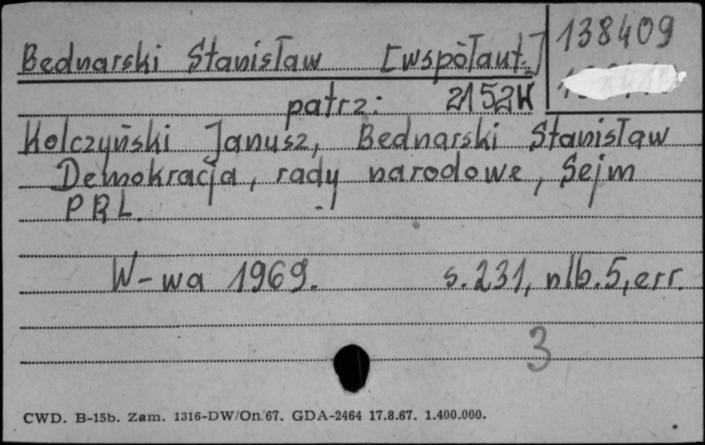 Bednarski Stanisław [współaut.]
138409
patrz: 2152K
Kolczyński Janusz, Bednarski Stanisław
Demokracja, rady narodowe, Sejm
PRL.
W-wa 1969. s. 231, nlb. 5, err.
3
CWD. B-15b. Zam. 1316-DW/On/67. GDA-2464 17.8.67. 1.400.000.